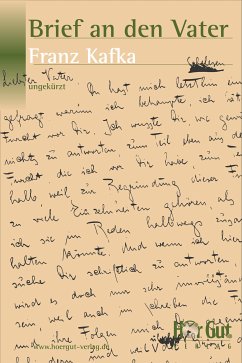 Brief an den Vater
Franz Kafka
Schelesen
Liebster Vater
ungekürzt
Du hast mich letzthin einmal
gefragt warum ich behaupte, ich hätte
Furcht vor Dir. Ich wusste Dir, wie gewö
nichts zu antworten zum Teil eben aus de
Furcht die ich vor Dir habe zum
halb, weil zur Begründung dieser Fu
zu viele Einzelnheiten gehören, als da
ich sie im Reden halbwegs zusam
halten könnte. Und wenn ich hi
suche Dir schriftlich zu antworten,
wird es doch nur sehr unvollständ
weil auch im Schreiben die
ihre Folgen mich
www.hoergut-verlag.de
Hör Gut
VERLAG